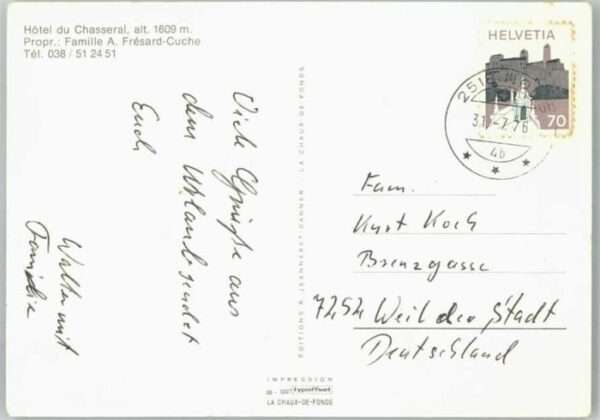 Hôtel du Chasseral, alt. 1609 m.
Propr.: Famille A. Frésard-Cuche
Tél. 038 / 51 24 51
Viele Grüße aus
dem Urlaub sendet
Euch
Walter mit
Familie
EDITIONS A. JEANNERET-DANNER - LA CHAUX-DE-FONDS
HELVETIA
70
251
31.-7.76
Fam.
Kurt Koch
Brenzgasse
7252 Weil der Stadt
Deutschland
IMPRESSION
typoffset
LA CHAUX-DE-FONDS